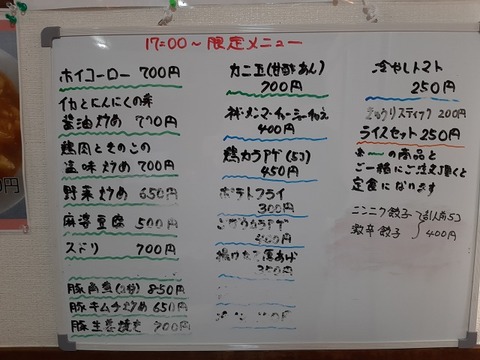 17:00～限定メニュー
ホイコーロー 700円
イカとにんにくの芽
醤油炒め 700円
鶏肉ときのこの
塩味炒め 700円
野菜炒め 650円
麻婆豆腐 500円
スドリ 700円
豚角煮 850円
豚キムチ炒め 650円
豚生姜焼き 700円
カニ玉(甘酢あん)
700円
ネギ・メンマ・チャーシュー和え
400円
鶏カラアゲ(5コ)
450円
ポテトフライ
300円
400円
揚げたて厚あげ
350円
冷やしトマト
250円
きゅうりスティック 200円
ライスセット 250円
の商品と
ご一緒にご注文頂くと
定食になります
ニンニク餃子 5コ
激辛餃子 400円